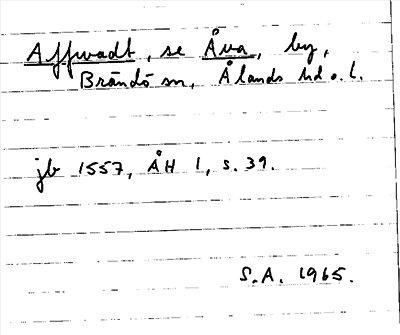 Affwadt, se Åva, by,
Brändö sn, Ålands hd o. l.
jb 1557, ÅH 1, s. 39.
S.A. 1965.